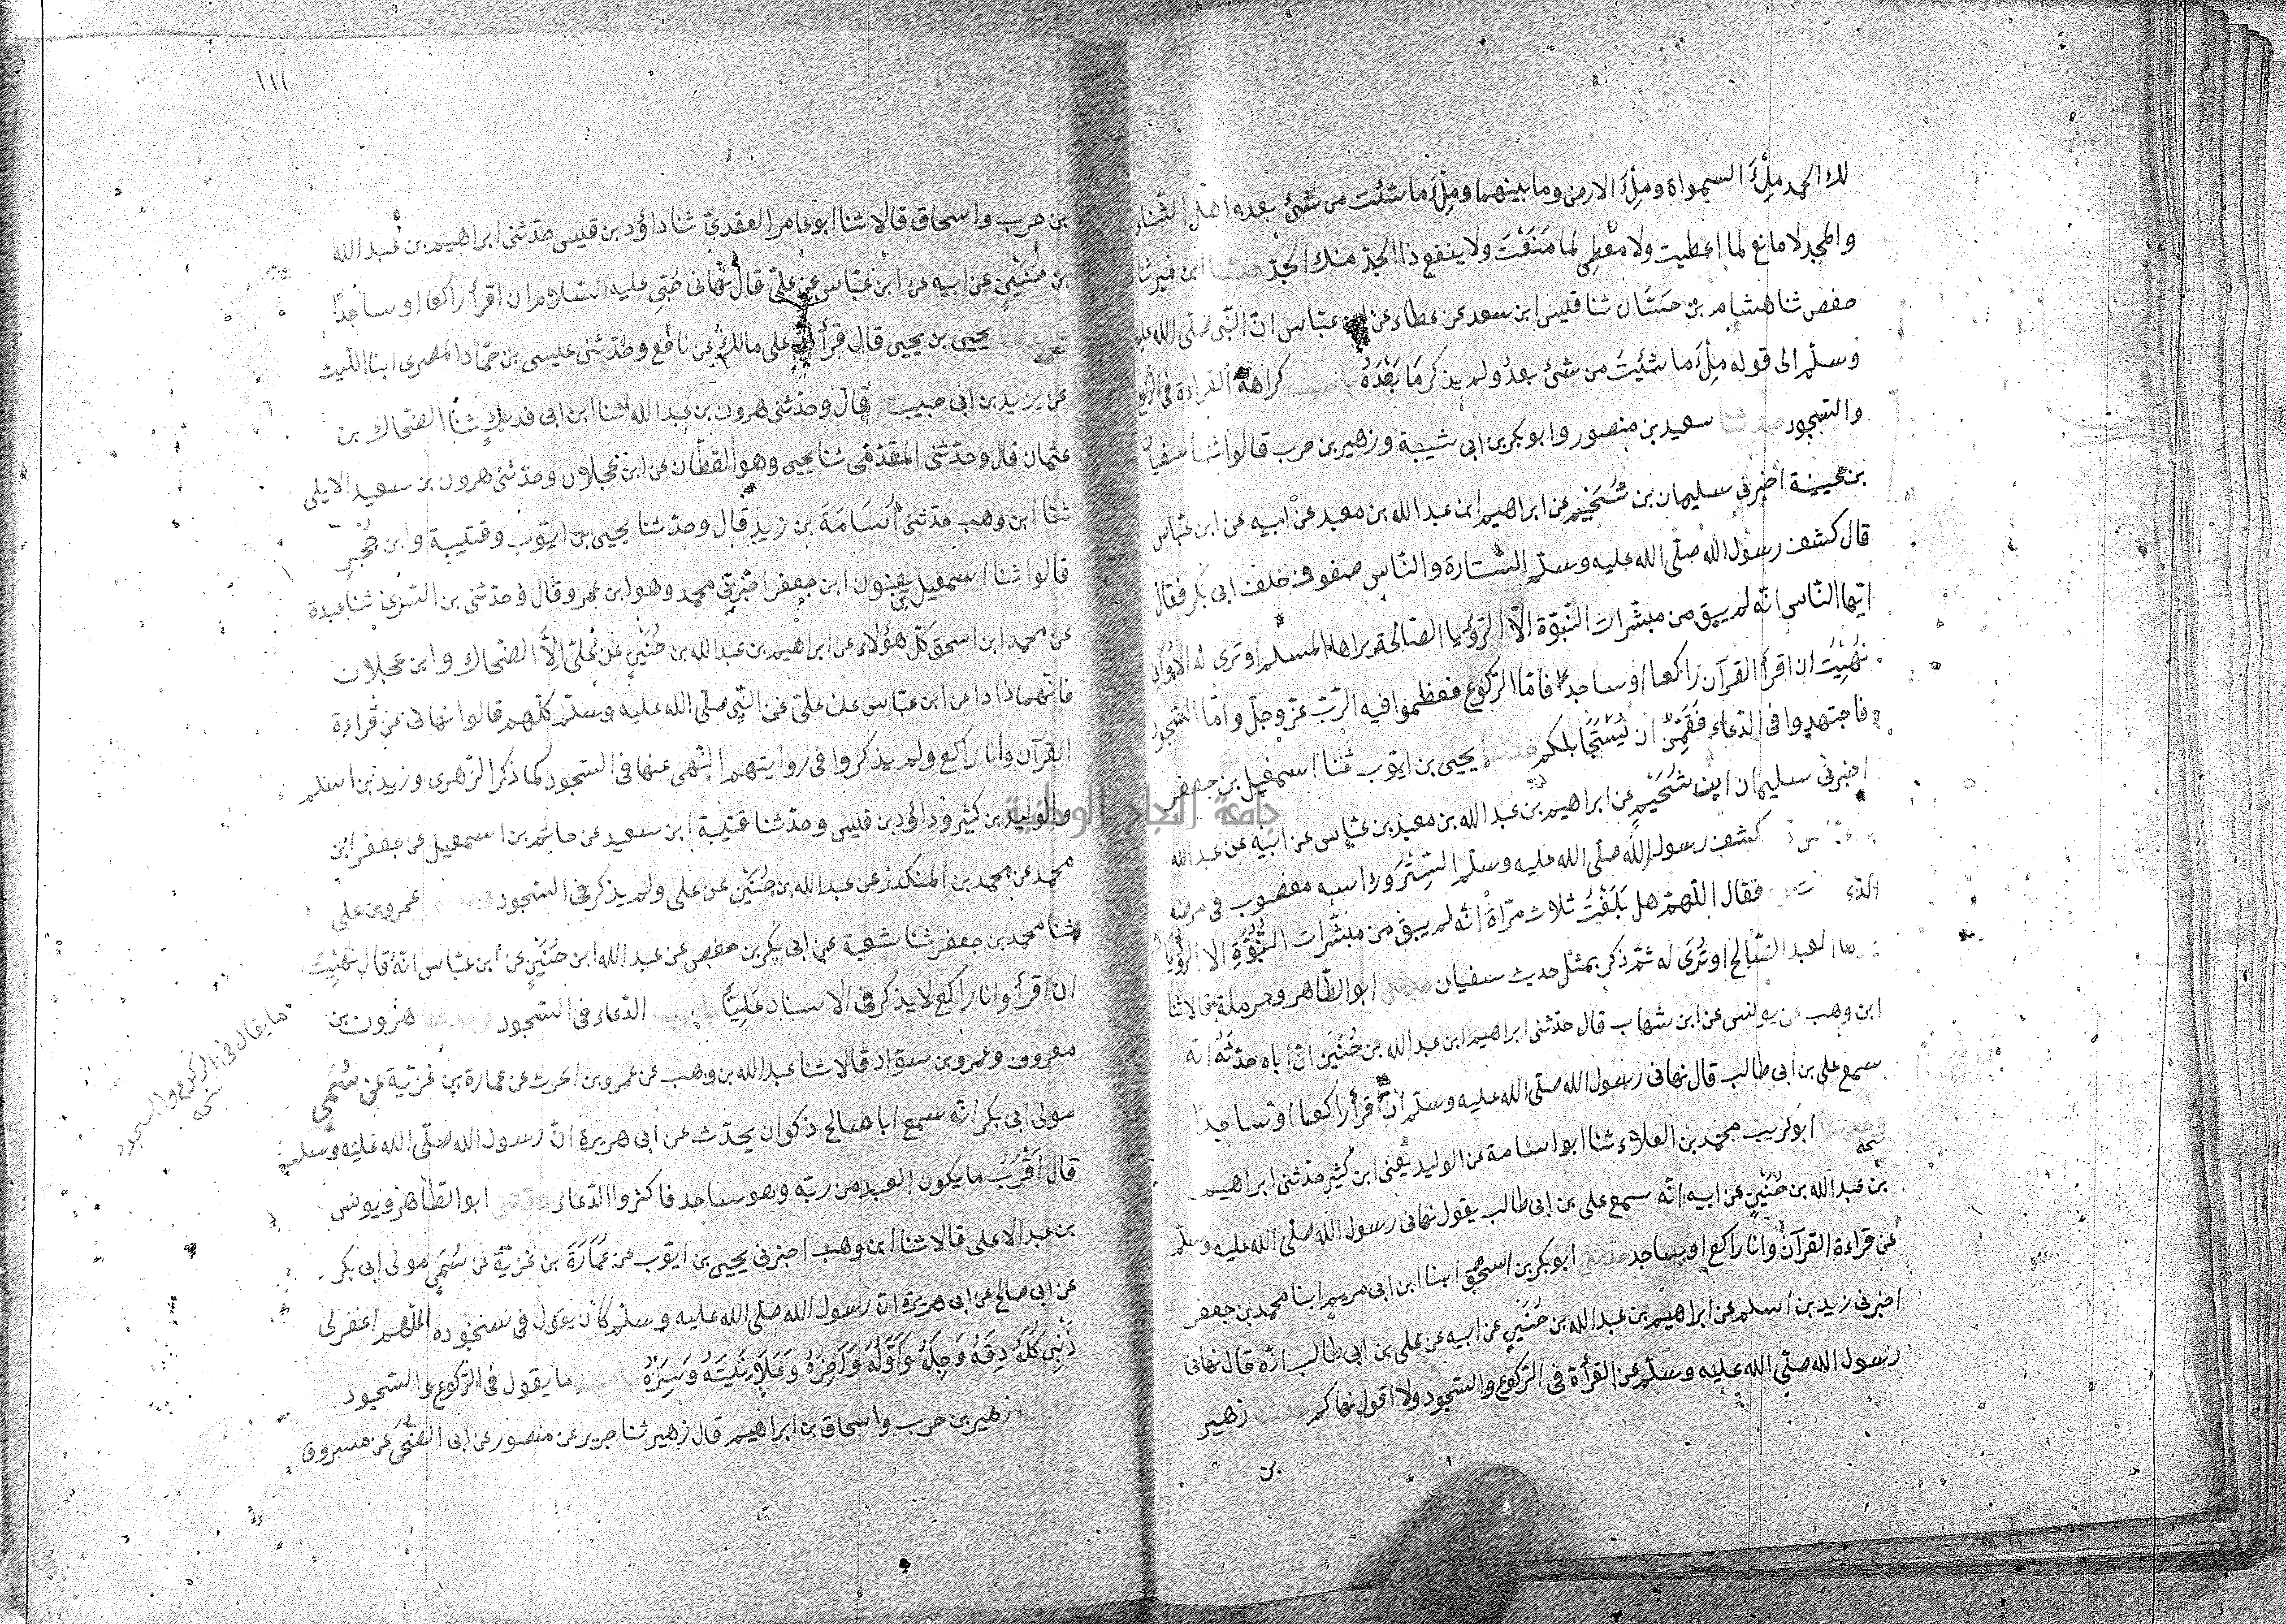 لك الحمد مِلْءَ السمواة ومِلْءَ الارض وما بينهما ومِلْءَ ما شئت من شئ بعده اهل الثناء
والمجد لا مانع لما اعطيت ولا مُعْطِى لما مَنَعْتَ ولا ينفع ذا الجدّ منك الجدّ حدثنا ابن نمير ثنا
حفص ثنا هشام بن حَسّان ثنا قليس ابن سعد عن عطاء عن ابن عباس انّ النّبى صلّى الله عليه
وسلّم الى قوله مِلْءَ ما شئِتَ من شئ بعدُ ولم يذكر مَا بَعْدَهُ باب كراهة القراءة فى الركوع
والسّجود حدثنا سعيد بن منصور وابو بكر بن ابى شيبة وزهير بن حرب قالوا ثنا سفيان
بن عيينة اخبرنى سليمان بن سُحَيْمٍ عن ابراهيم ابن عبد الله بن معبد عن ابيه عن ابن عبّاس
قال كشف رسول الله صلّى الله عليه وسلّم السّتارة والنّاس صفوف خلف ابى بكر فقال
ايّها النّاس انّه لم يبق من مبشّرات النّبوّة الّا الرّؤيا الصّالحة يراها المسلم او ترى له الا وانى
نُهِيْتُ ان اقرأ القرآن راكعا او ساجدًا فامّا الرّكوع فعظموا فيه الرّبّ عزّ وجلّ وامّا السّجود
فاجتهدوا فى الدّعاء فَقَمِنٌ ان يُسْتَجَابَ لكم حدثنا يحيى بن ايّوب ثنا اسمعيل بن جعفر
اخبرنى سليمان ابن سُحَيْمٍ عن ابراهيم بن عبد الله بن معبد بن عبّاس عن ابيه عن عبد الله
كشف رسول الله صلّى الله عليه وسلّم السِّتْرَ وراسه معصوب فى مرضه
الذى فقال اللّهمّ هل بَلَّغْتُ ثلاث مرّاة انّه لم يبق من مبشّرات النُّبُوَّةِ الا الرُّؤيَا
يراها العبد الصّالح او تُرَى له ثمّ ذكر بمثل حديث سفيان حدثنى ابو الطّاهر وحرملة قالا ثنا
ابن وهب عن يونس عن ابن شهاب قال حدّثنى ابراهيم ابن عبد الله بن حُنَيْن انّ اباه حدّثَهُ انّه
سمع على بن ابى طالب قال نهانى رسول الله صلّى الله عليه وسلّم انْ اقرأ راكعا او ساجدًا
وحدثنا ابو كريب محمد بن العلاء ثنا ابو اسامة عن الوليد يعنى ابن كثير حدثنى ابراهيم
نسخه
بن عبد الله بن حُنَيْنٍ عن ابيه انّه سمع على بن ابى طالب يقول نهانى رسول الله صلّى الله عليه وسلّم
عن قراءة القرآن وانا راكع او ساجد حدّثنى ابو بكر بن اسحٰق ابنا ابن ابى مريم ابنا محمد بن جعفر
اخبرنى زيد بن اسلم عن ابراهيم بن عبد الله بن حُنَيْنٍ عن ابيه عن على بن ابى طالب انّه قال نهانى
رسول الله صلّى الله عليه وسلّم عن القرأة فى الرّكوع والسّجود ولا اقول نهاكم حدثنا زهير
بن
١١١
بن حرب واسحاق قالا ثنا ابو عامر العقدىّ ثنا داؤد بن قيس حدّثنى ابراهيم بن عبد الله
بن حُنَيْنٍ عن ابيه عن ابن عبّاس عن علىّ قال نهانى حِبّى عليه السّلام ان اقرأ راكعا او ساجدًا
وحدثنا يحيى بن يحيى قال قرأت على مالك عن نافع وحدّثنى عيسى بن حمّاد المصرى ابنا اللّيث
عن يزيد بن ابى حبيب ح قال وحدّثنى هرون بن عبد الله ثنا ابن ابى فديكٍ ثنا الضّحاك بن
عثمان قال وحدّثنى المقدّمى ثنا يحيى وهو القطّان عن ابن عجلان وحدّثنى هرون بن سعيد الايلى
ثنا ابن وهب حدّثنى اُسَامَةَ بن زيدٍ قال وحدّثنا يحيى بن ايّوب وقتيبة وابن حُجرٍ
قالوا ثنا اسمعيل يعنون ابن جعفر اخبرنى محمد وهو ابن عمرو قال وحدّثنى بن السّرّى ثنا عبدة
عن محمد ابن اسحق كلّ هؤلاء عن ابراهيم بن عبد الله بن حُنَيْنٍ عن علىّ الّا الضّحاك وابن عجلان
فانّهما ذادا عن ابن عبّاس عن علىّ عن النّبى صلّى الله عليه وسلّم كلّهم قالوا نهانى عن قراءة
القرآن وانا راكع ولم يذكروا فى روايتهم النّهى عنها فى السّجود كما ذكر الزّهرى وزيد بن اسلم
والوليد بن كثير وداؤد بن قيس وحدّثنا قتيبة ابن سعيد عن حاتم بن اسمعيل عن جعفر ابن
محمد عن محمد بن المنكدر عن عبد الله بن حُنَيْنٍ عن على ولم يذكر فى السّجود وحدثنى عمرو بن على
ثنا محمد بن جعفر ثنا شعبة عن ابى بكر بن حفص عن عبد الله ابن حُنَيْنٍ عن ابن عبّاس انّه قال نُهِيْتُ
ان اقرأ وانا راكع لا يذكر فى الاسناد عَلِيًّا باب الدّعاء فى السّجود وحدثنا هٰرون بن
معروف وعمرو بن سوّاد قالا ثنا عبد الله بن وهب عن عمرو بن الحرث عن عمارة بن غزيّة عن سُمَىٍّ
مولى ابى بكر انّه سمع ابا صالح ذكوان يحدّث عن ابى هريرة انّ رسول الله صلّى الله عليه وسلم
قال اَقْرَبُ ما يكون العبد من ربّه وهو ساجد فاكثروا الدّعاء حدّثنى ابو الطّاهر ويونس
بن عبد الاعلى قالا ثنا ابن وهب اخبرنى يحيى بن ايّوب عن عُمَارَةَ بن غزيّة عن سُمَىٍّ مولى ابى بكر
عن ابى صالح عن ابى هريرة انّ رسول الله صلّى الله عليه وسلّم كان يقول فى سجوده اللّهم اغفر لى
ذَنْبِى كُلَّهُ دِقَّهُ وَجِلَّهُ وَاَوَّلَهُ وَاٰخِرَهُ وَعَلَانِيَتَهُ وَسِرَّهُ باب ما يقول فى الرّكوع والسّجود
حدثنا زهير بن حرب واسحاق بن ابراهيم قال زهير ثنا جرير عن منصور عن ابى الضّحى عن مسروق
ما يقال فى الركوع والسجود
نسخه
جامعة النجاح الوطنية